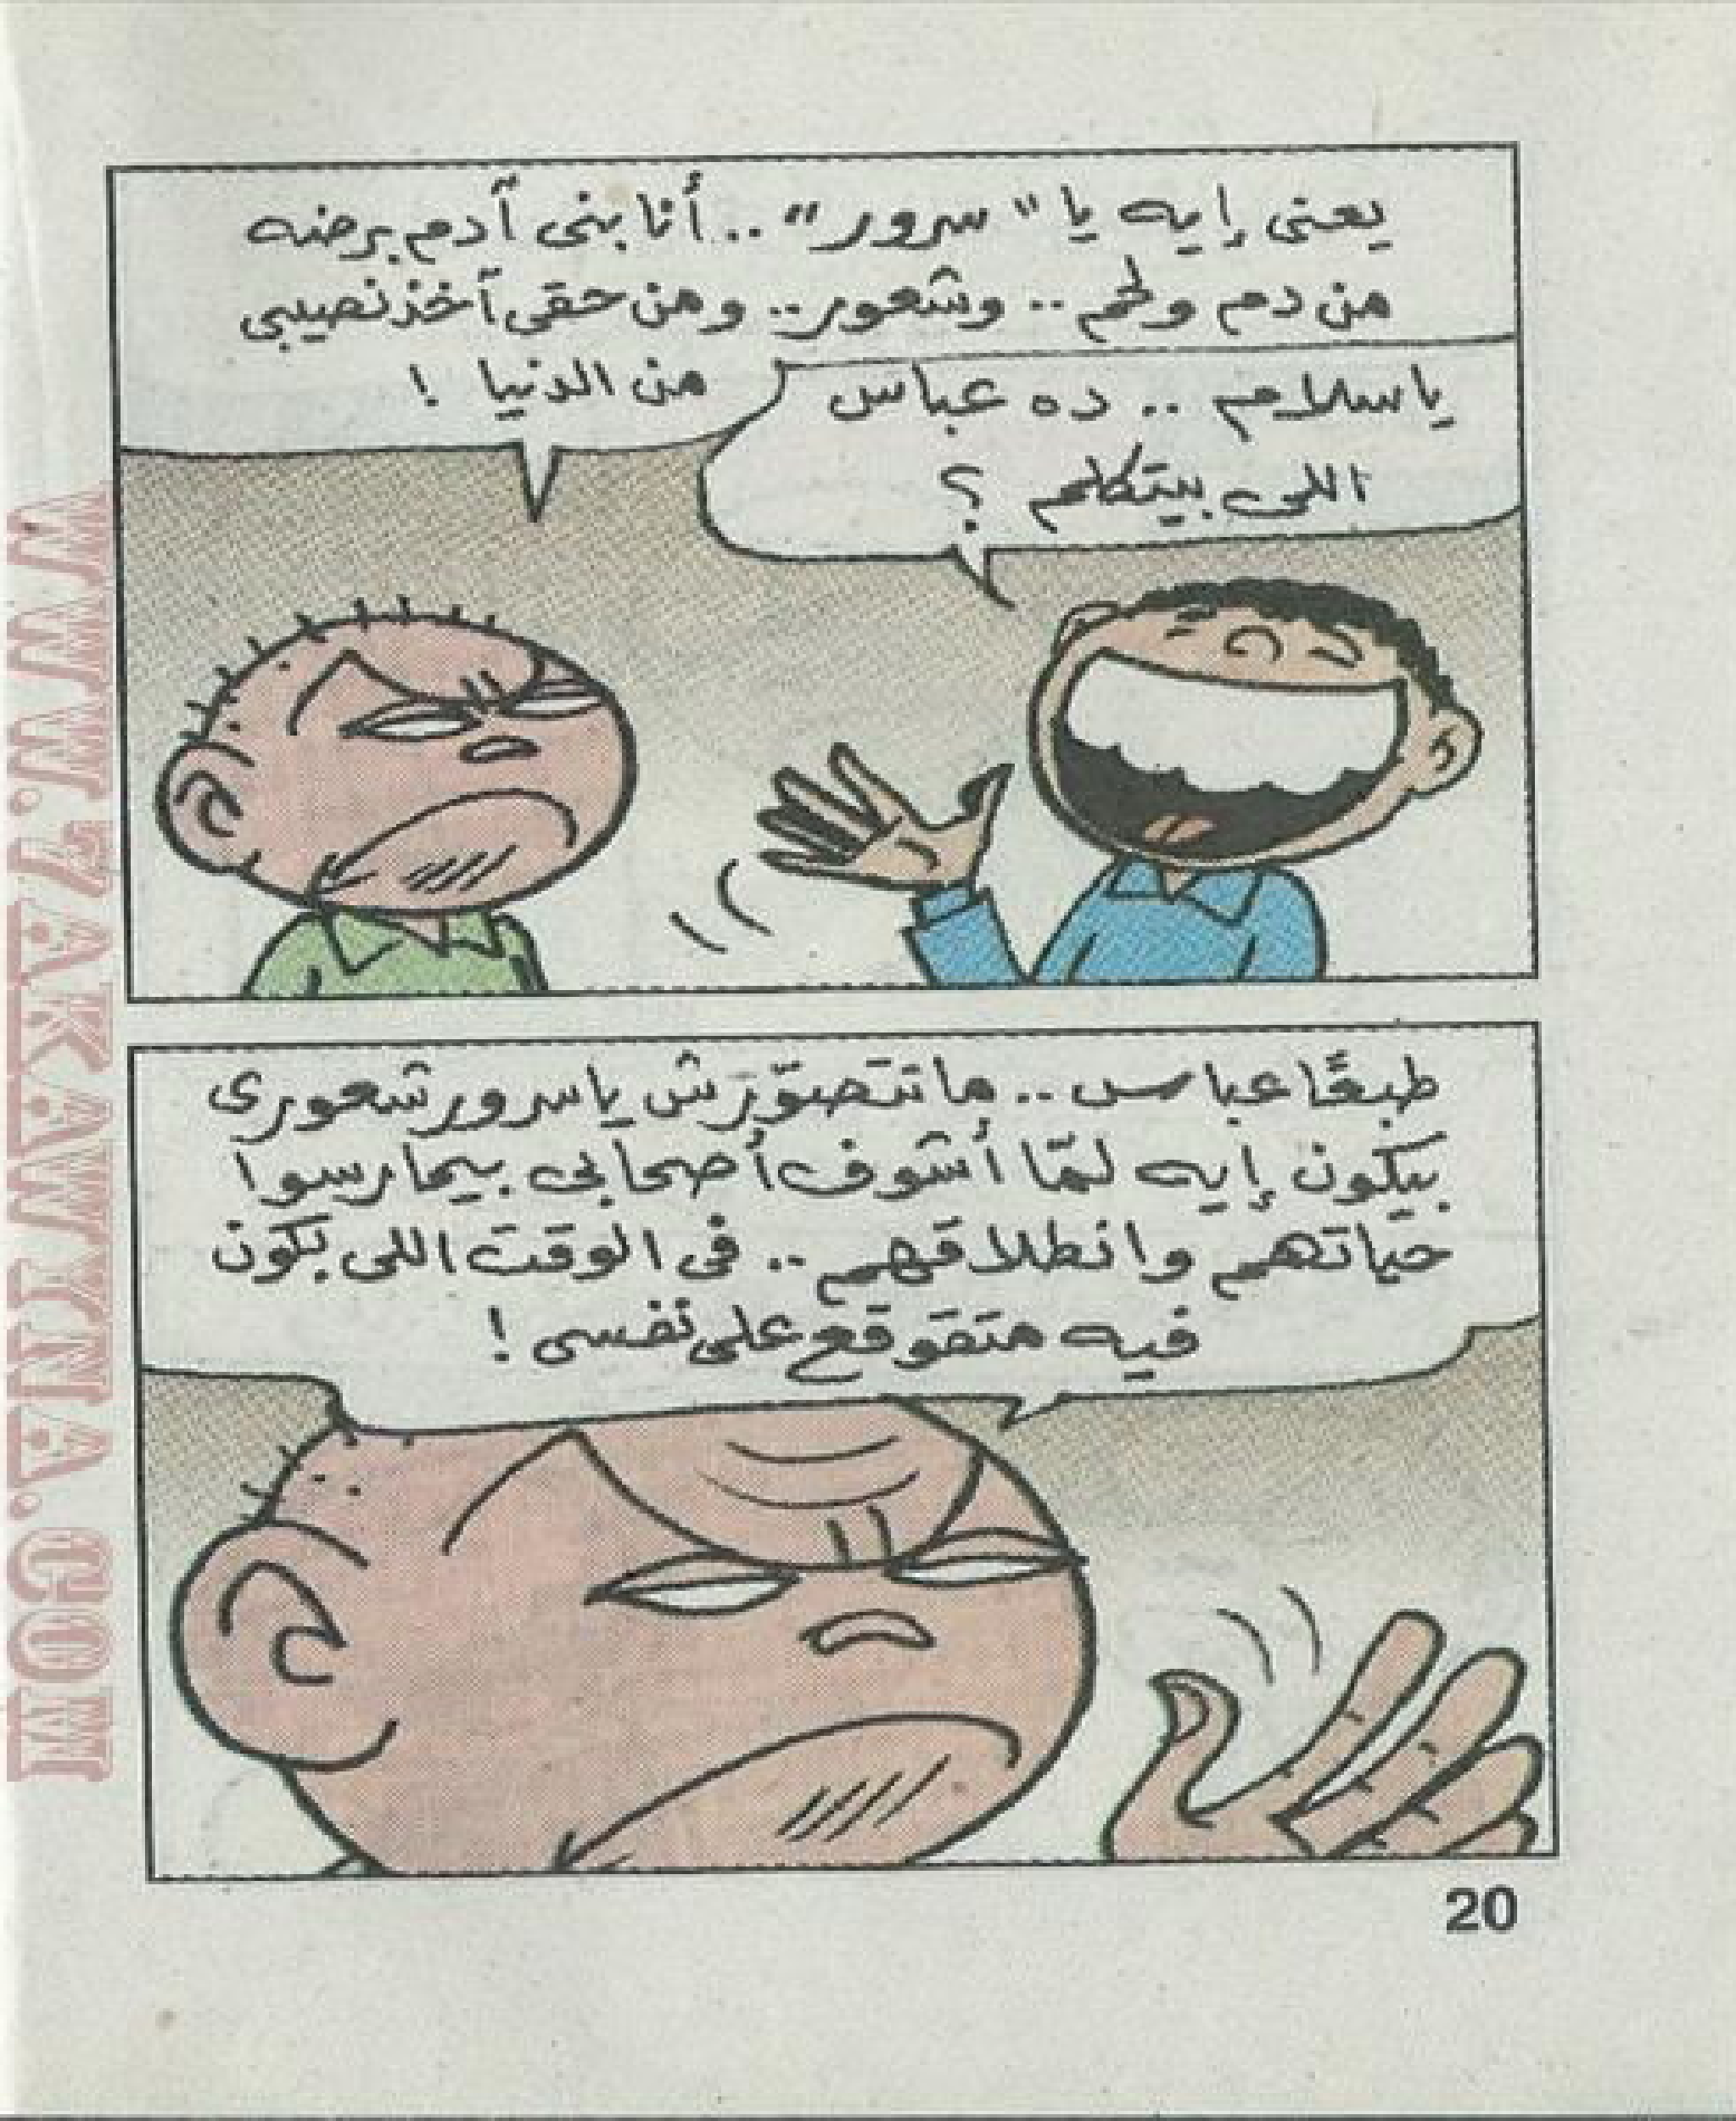 يعنى إيه يا "سرور" .. أنا بنى آدم برضه
من دم ولحم .. وشعور .. ومن حقى آخذ نصيبى
من الدنيا !
ياسلام .. ده عباس
اللى بيتكلم ؟
طبعًا عباس .. ما تتصوّرش ياسرور شعورى
بيكون إيه لمّا أشوف أصحابى بيمارسوا
حياتهم وانطلاقهم .. فى الوقت اللى بكون
فيه متقوقع على نفسى !
20
WWW.ZAKAWKINA.COM